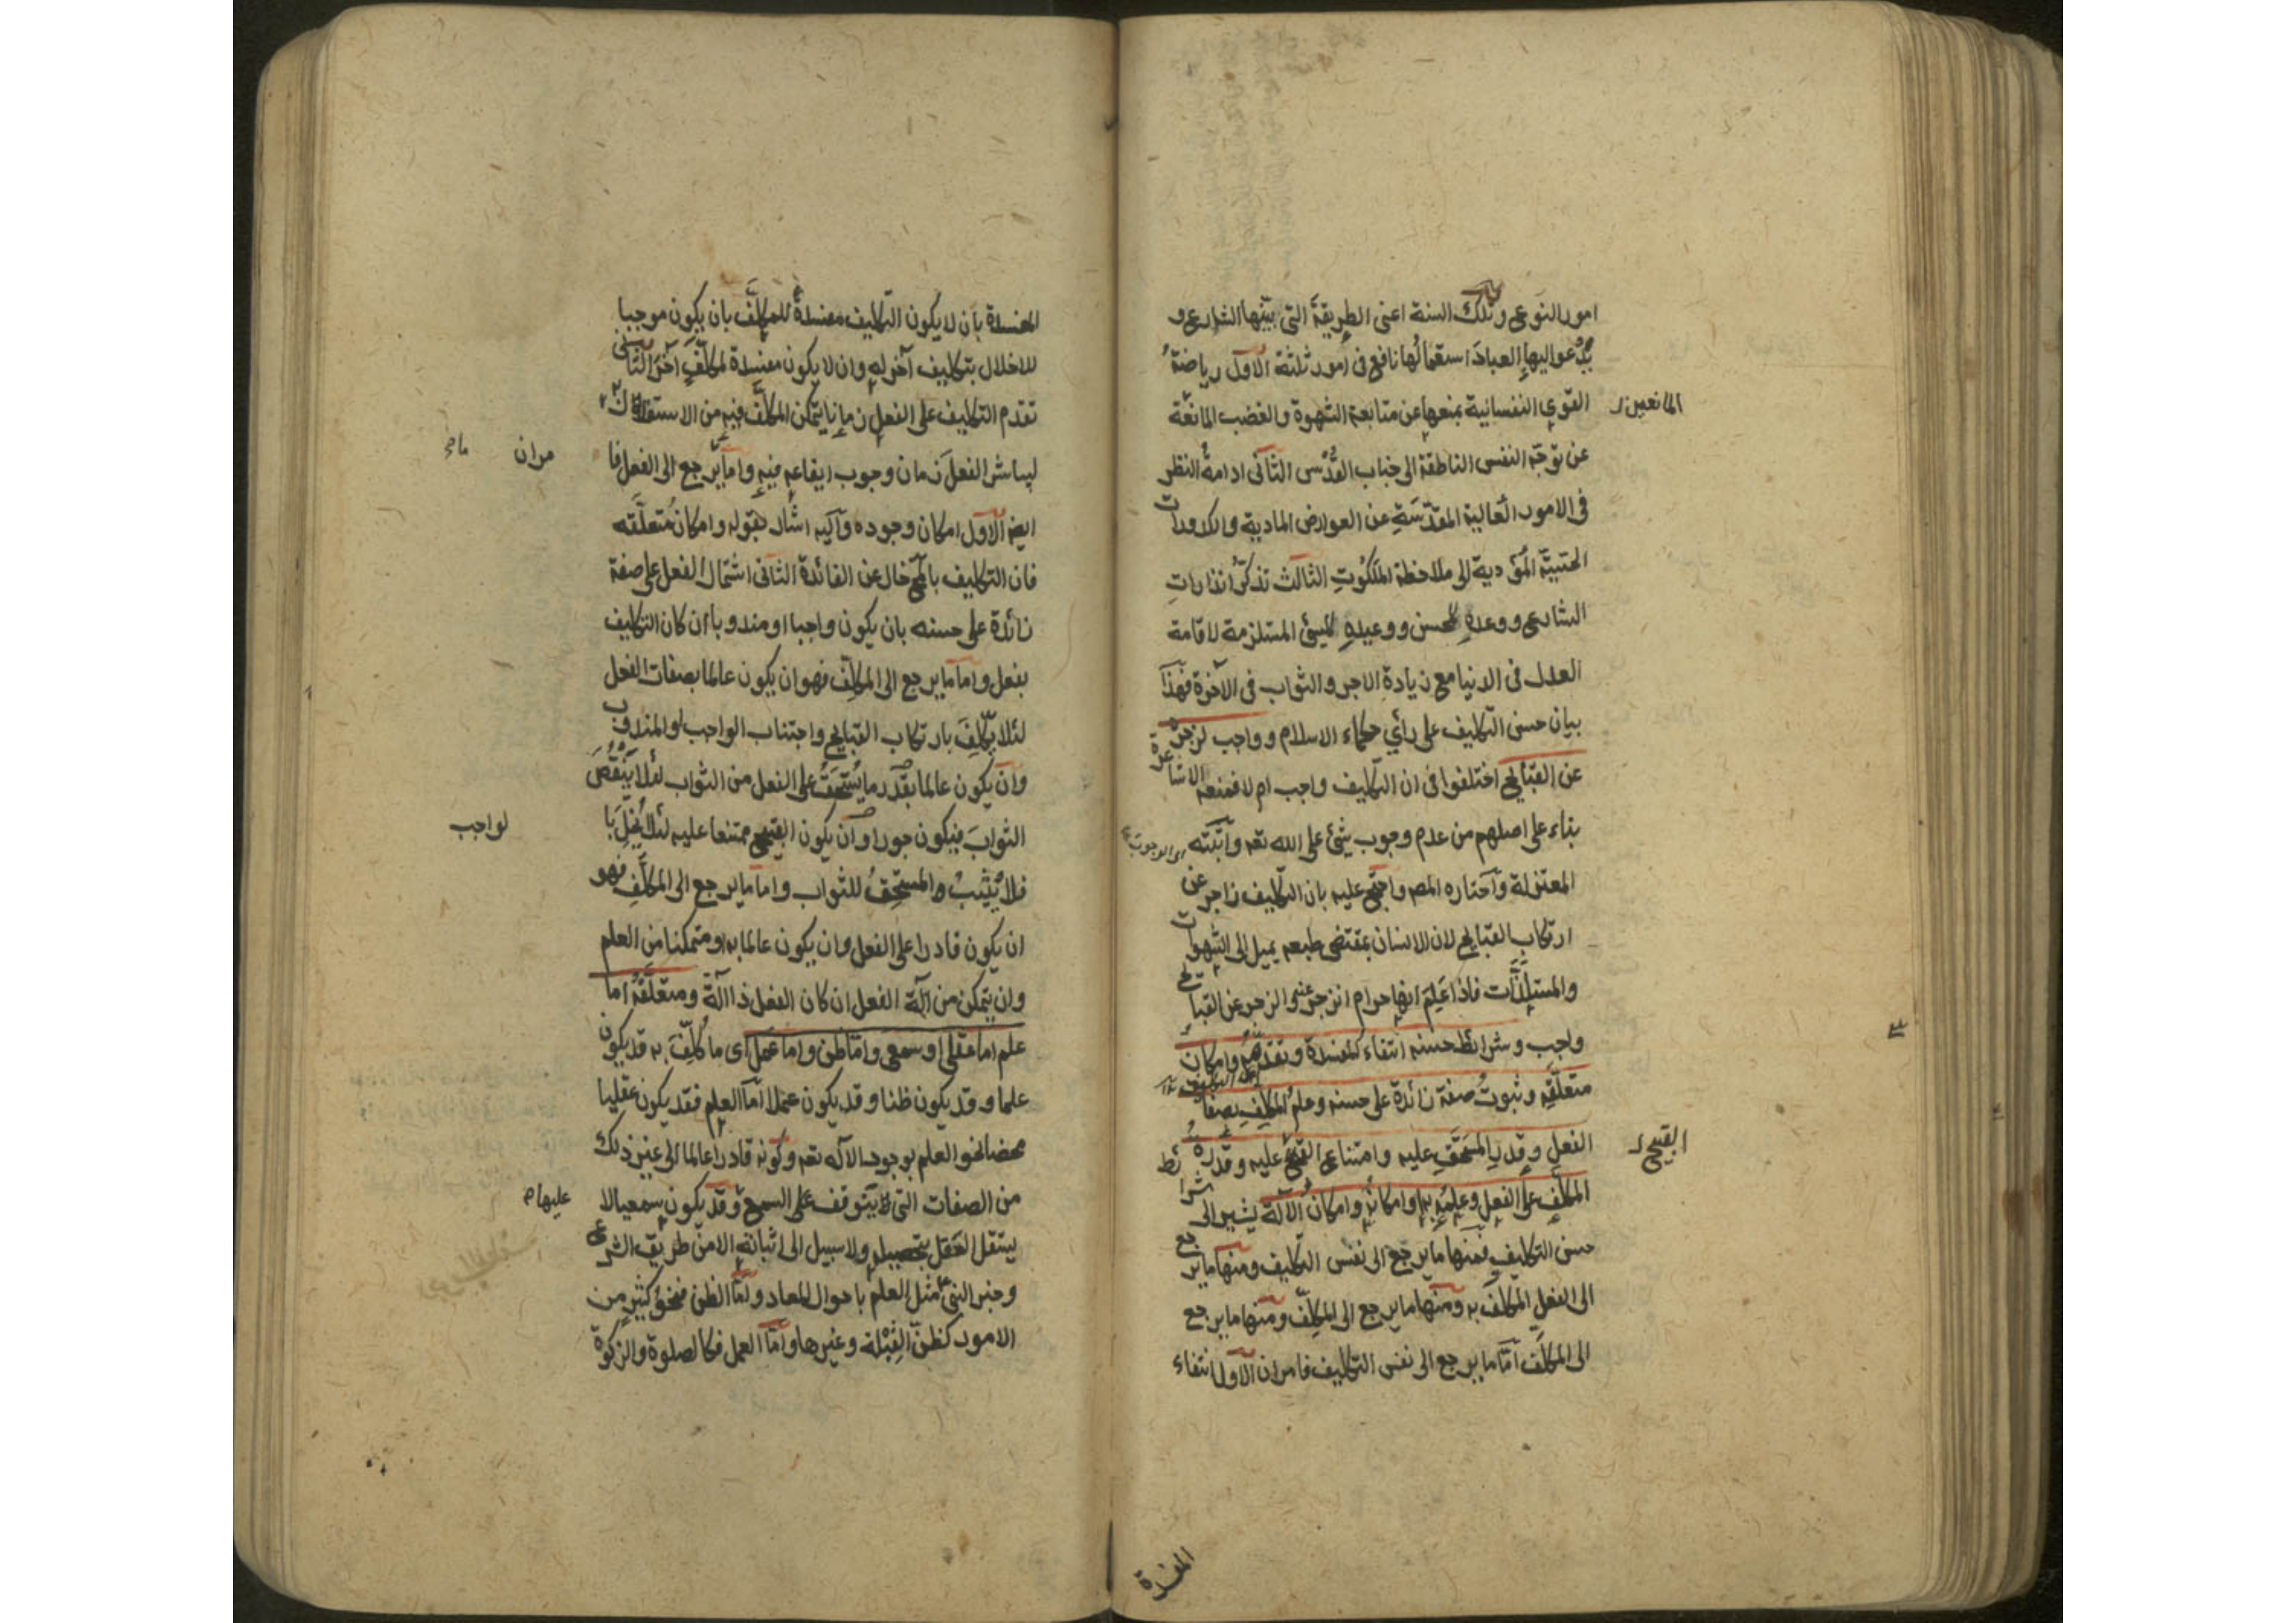 امور النوع وتلك السنة اعنى الطريقة التى بيّنها الشارع و
يدعو اليها العباد استعمالها نافع فى امور ثلثة الاول رياضة
القوى النفسانية بمنعها عن متابعة الشهوة والغضب المانعة
المانعين
عن توجّه النفس الناطقة الى جناب القدس الثانى ادامة النظر
فى الامور العالية المقدّسة عن العوارض المادية والكدورات
الحسّيّة المؤدية الى ملاحظة الملكوت الثالث تذكّر انذارات
الشارع ووعده للمحسن ووعيده للمسئ المستلزمة لاقامة
العدل فى الدنيا مع زيادة الاجر والثواب فى الآخرة فهذا
بيان حسن التكليف على رأي حكماء الاسلام وواجب لزجره
عن القبايح اختلفوا فى ان التكليف واجب ام لا فمنعه الاشاعرة
بناء على اصلهم من عدم وجوب شئ على الله تعه واثبته
اى الوجوب
المعتزلة واختاره المص واحتج عليه بان التكليف زاجر عن
ارتكاب القبايح لان الانسان بمقتضى طبعه يميل الى الشهوات
والمستلذّات فاذا علم انها حرام انزجر عنه والزجر عن القبايح
واجب وشرايط حسنه انتفاء المفسدة وتقدمه وامكان
متعلّقه وثبوت صفة زائدة على حسنه وعلم المكلِّف بصفات
الفعل وقدر المستحَق عليه وامتناع القبح عليه وقدرة
القبيح
المكلَّف على الفعل وعلمه به او امكانه وامكان الآلة يشير الى شرائط
حسن التكليف فمنها ما يرجع الى نفس التكليف ومنها ما يرجع
الى الفعل المكلَّف به ومنها ما يرجع الى المكلِّف ومنها ما يرجع
الى المكلَّف امّا ما يرجع الى نفس التكليف فامران الاول انتفاء
المفسدة
المفسدة بان لا يكون التكليف مفسدة للمكلَّف بان يكون موجبا
للاخلال بتكليف آخر له وان لا يكون مفسدة لمكلَّف آخر الثانى
تقدم التكليف على الفعل زمانا يتمكن المكلَّف فيه من الاستدلال
ليباشر الفعل زمان وجوب ايقاعه فيه واما يرجع الى الفعل فا
مران
ما
ايضه الاول امكان وجوده واليه اشار بقوله وامكان متعلّقه
فان التكليف بالمح خال عن الفائدة الثانى اشتمال الفعل على صفة
زائدة على حسنه بان يكون واجبا او مندوبا ان كان التكليف
بفعل واما ما يرجع الى المكلِّف فهو ان يكون عالما بصفات الفعل
لئلا يكلّف بارتكاب القبايح واجتناب الواجب والمندوب
وان يكون عالما بقدر ما يُستحَقّ على الفعل من الثواب لئلا ينقص
الثواب فيكون جورا وان يكون القبيح ممتنعا عليه لئلا يخلّ با
لواجب
فلا يثيب المستحِقّ للثواب واما ما يرجع الى المكلَّف فهو
ان يكون قادرا على الفعل وان يكون عالما به او متمكنا من العلم
وان يتمكن من آلة الفعل ان كان الفعل ذا آلة ومتعلّقه اما
علم اما عقلى او سمعى واما ظن واما عمل اى ما كُلّف به قد يكون
علما وقد يكون ظنا وقد يكون عملا امّا العلم فقد يكون عقليا
محضا نحو العلم بوجود الاله تعه وكونه قادرا عالما الى غير ذلك
من الصفات التى لا يتوقف على السمع وقد يكون سمعيا لا
عليها م
يستقل العقل بتحصيله ولا سبيل الى اثباته الا من طريق الشرع
وخبر النبى مثل العلم باحوال المعاد وامّا الظن فنحو كثير من
الامور كظنّ القبلة وغيرها وامّا العمل فكالصلوة والزكوة